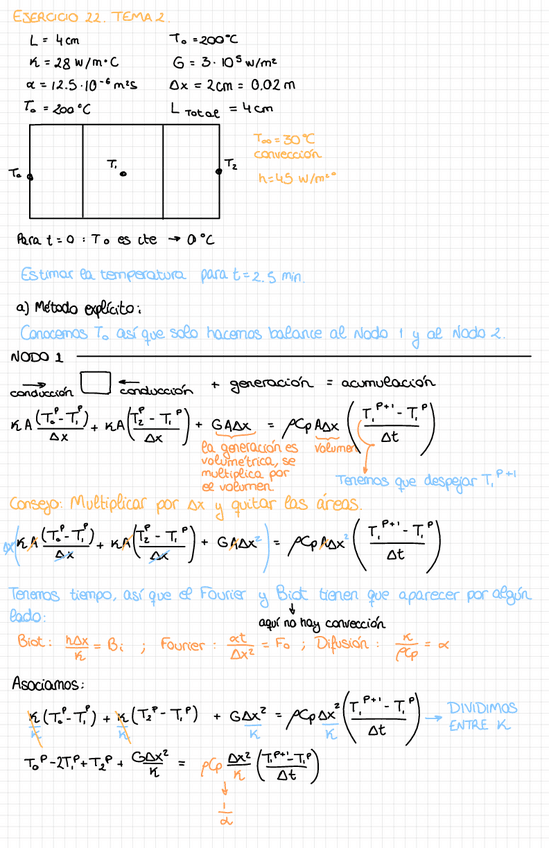 EJERCICIO 22. TEMA 2.
L = 4cm
T₀ = 200°C
K = 28 W/m·C
G = 3·10⁵ W/m²
α = 12.5·10⁻⁶ m²s
Δx = 2cm = 0.02 m
T₀ = 200°C
L TOTAL = 4cm
T∞ = 30°C
convección
h=45 W/m²°
T₀
T₁
T₂
Para t=0 : T₀ es cte → 0°C
Estimar la temperatura para t=2.5 min.
a) Método explícito:
Conocemos T₀ así que solo hacemos balance al Nodo 1 y al Nodo 2.
NODO 1
conducción → ← conducción + generación = acumulación
KA (T₀ᵖ-T₁ᵖ)/Δx + KA (T₂ᵖ-T₁ᵖ)/Δx + GAΔx = ρCpAΔx ((T₁ᵖ⁺¹-T₁ᵖ)/Δt)
la generación es
volumétrica, se
multiplica por
el volumen
volumen
Tenemos que despejar T₁ᵖ⁺¹
Consejo: Multiplicar por Δx y quitar las áreas.
Δx (KA (T₀ᵖ-T₁ᵖ)/Δx + KA (T₂ᵖ-T₁ᵖ)/Δx + GAΔx²) = ρCpAΔx² ((T₁ᵖ⁺¹-T₁ᵖ)/Δt)
Tenemos tiempo, así que el Fourier y Biot tienen que aparecer por algún
lado:
aquí no hay convección
Biot: hΔx/K = Bi ; Fourier: αt/Δx² = F₀ ; Difusión: K/ρCp = α
Asociamos:
K/K (T₀ᵖ-T₁ᵖ) + K/K (T₂ᵖ-T₁ᵖ) + GΔx²/K = ρCpΔx²/K ((T₁ᵖ⁺¹-T₁ᵖ)/Δt) → DIVIDIMOS
ENTRE K
T₀ᵖ-2T₁ᵖ+T₂ᵖ + GΔx²/K = ρCp Δx²/K ((T₁ᵖ⁺¹-T₁ᵖ)/Δt)
1/α